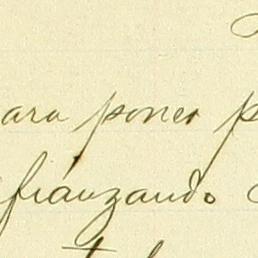 ara poner p
fianzando.